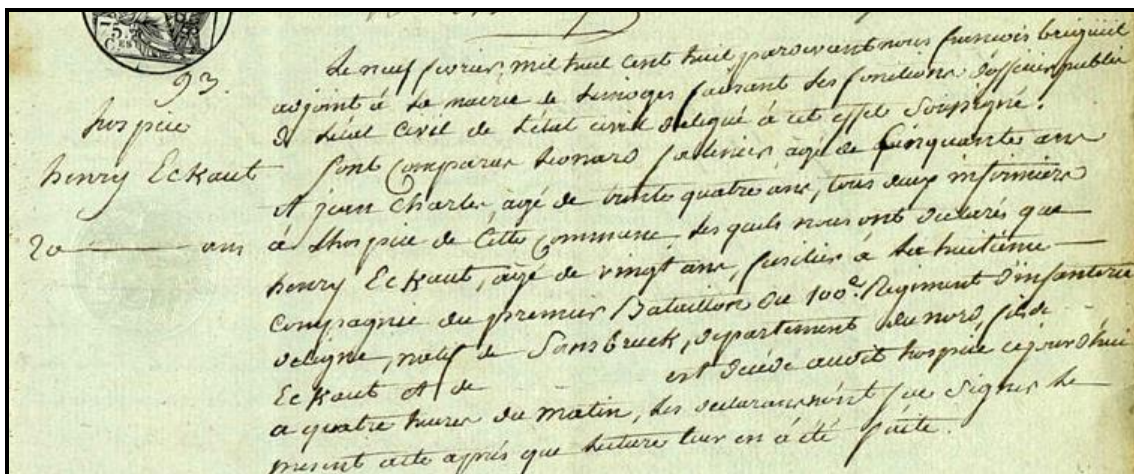 5.
CES
93.
hospice
henry Eckaut
20 ans
Le neuf fevrier, mil huit cent huit, pardevant nous francois
adjoint à la mairie de Limoges faisant les fonctions d'officier public
de l'état Civil de l'état civil deligué à cet effet Soussigné.
Sont comparus Leonard, agé de Cinquante ans
et jean Charles, agé de trente quatre ans, tous deux infirmiers
à L'hospice de Cette Commune, les quels nous ont declarés que
henry Eckaut, agé de vingt ans, fusilier à la huitième
Compagnie du premier Bataillon du 100e. Regiment d'infanterie
de ligne, natif de Sansbruck, departement du nord, fils de
Eckaut et de est décédé audit hospice cejourd'hui
a quatre heures du matin, les declarans n'ont scu signer le
present acte après que lecture leur en à été faite.